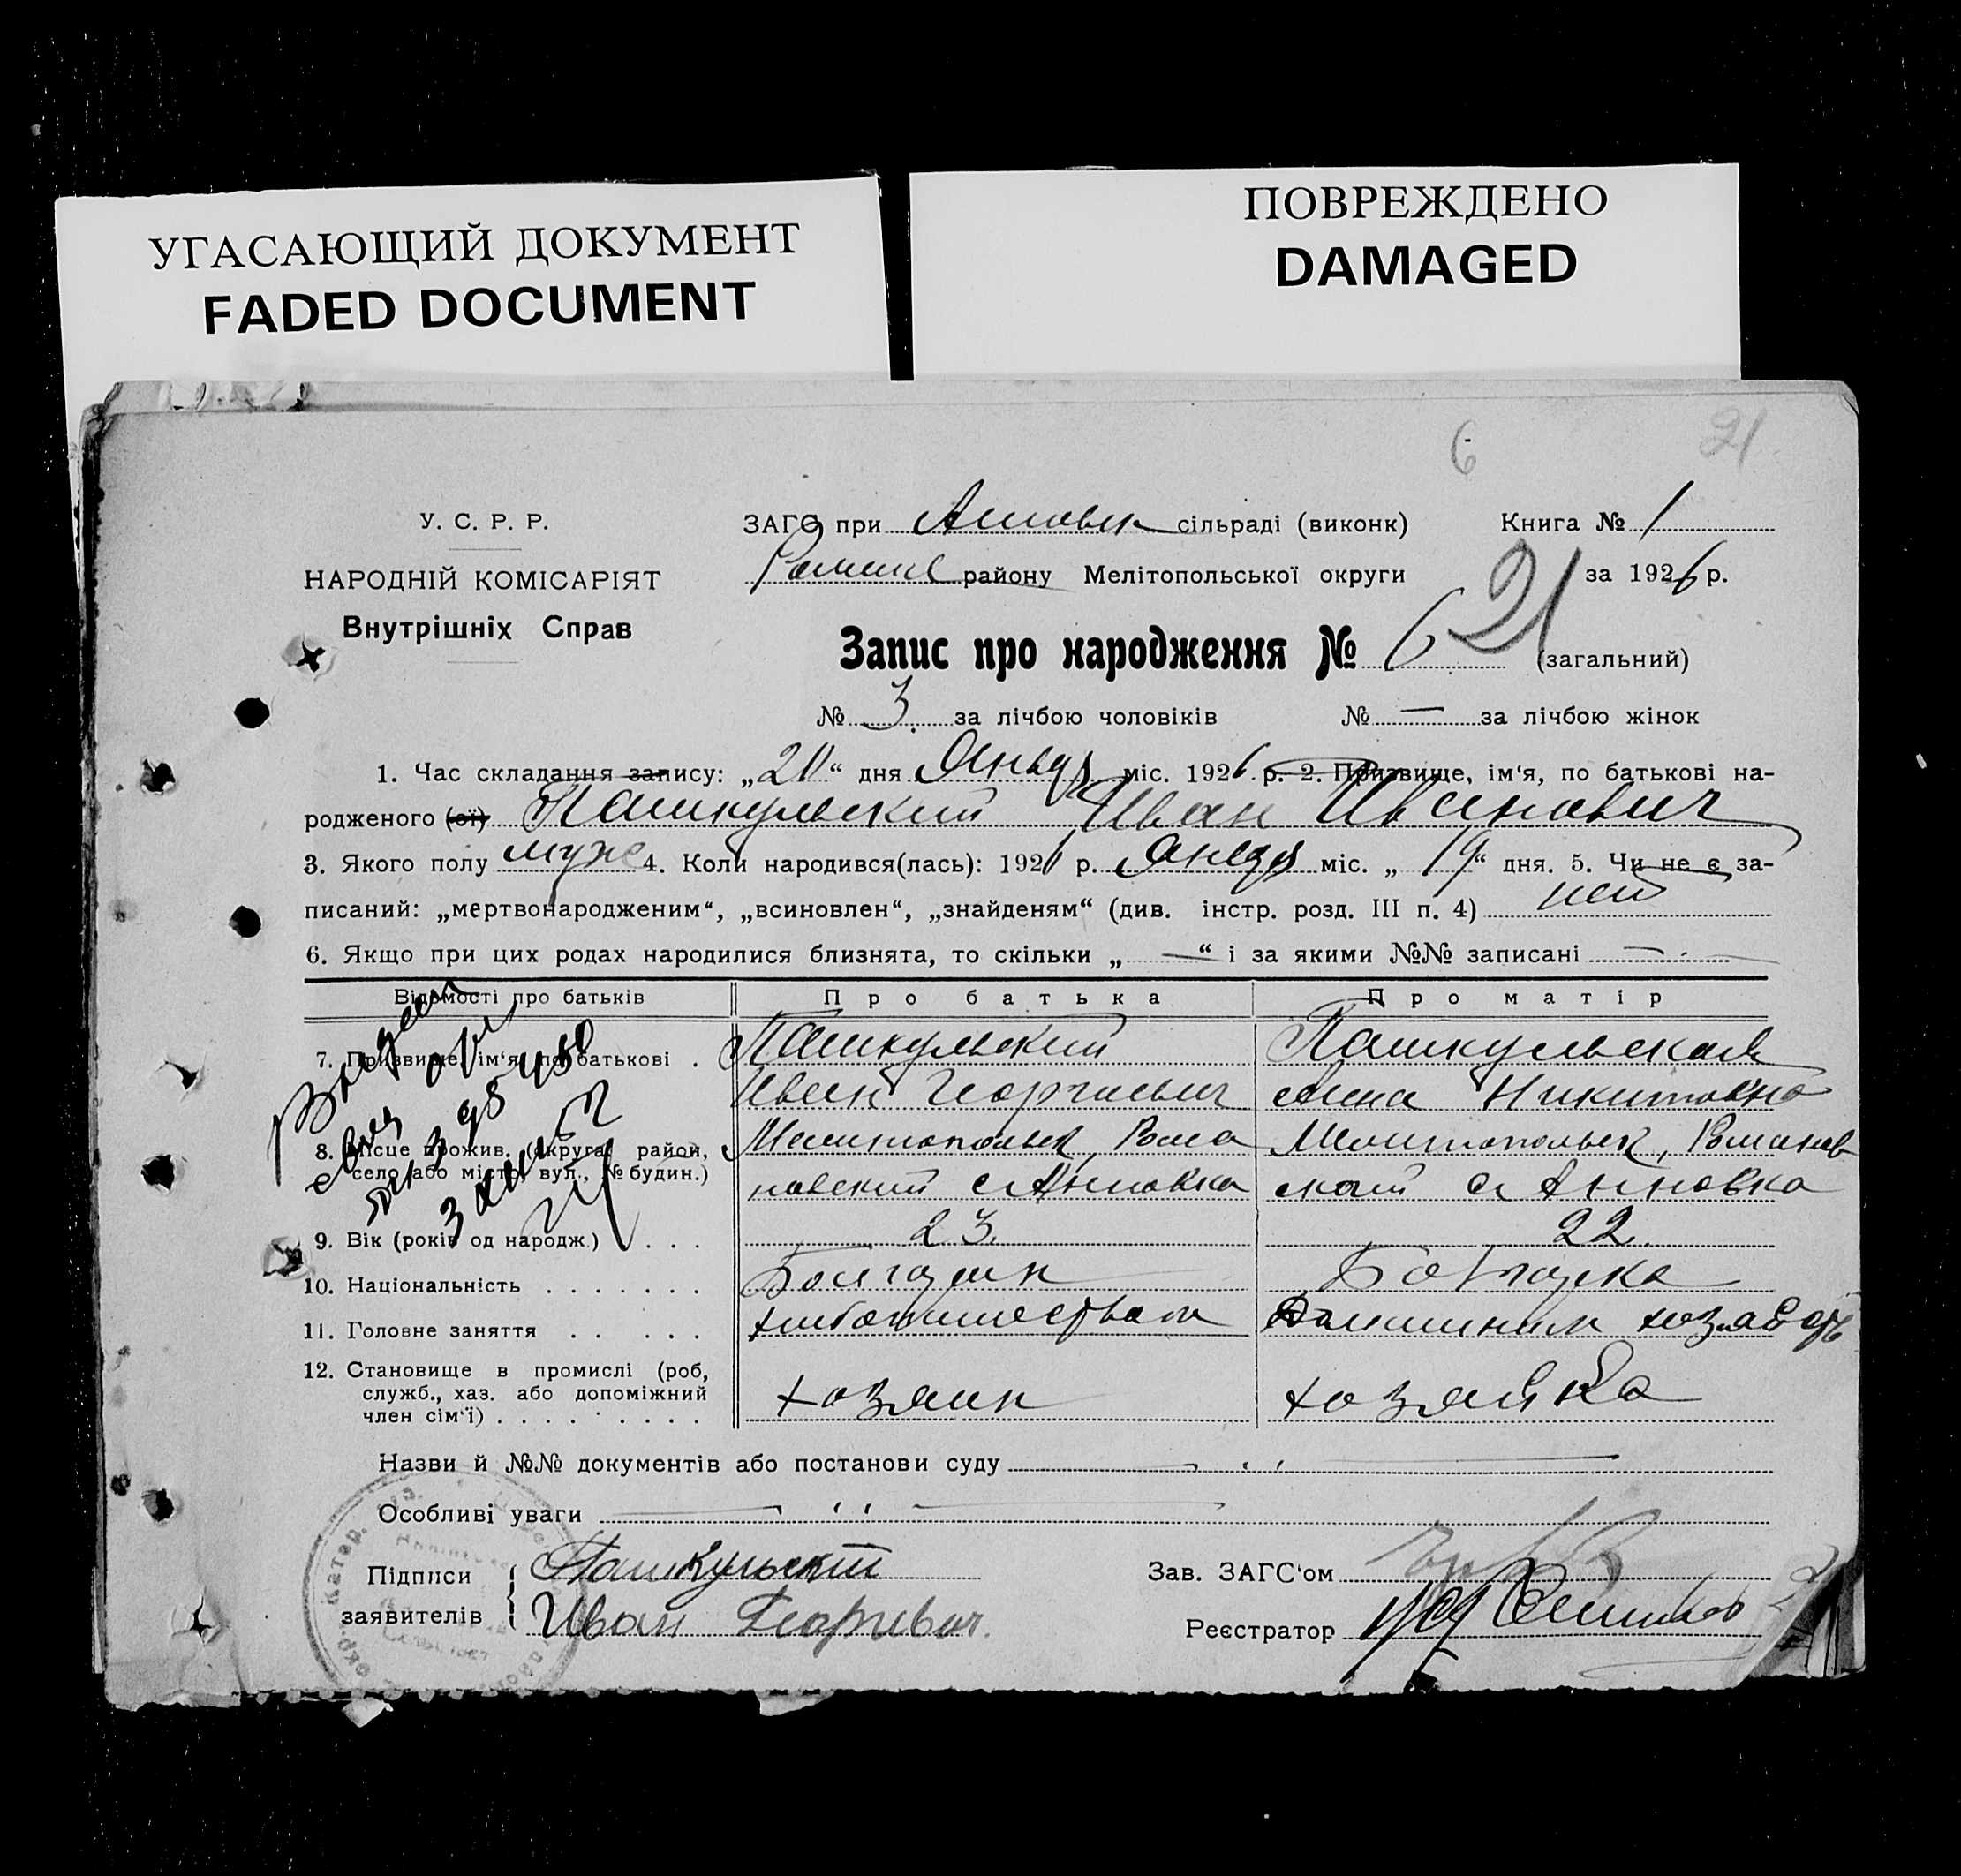 УГАСАЮЩИЙ ДОКУМЕНТ
FADED DOCUMENT
ПОВРЕЖДЕНО
DAMAGED
6 21
У. С. Р. Р.
НАРОДНІЙ КОМІСАРІЯТ
Внутрішніх Справ
ЗАГС при сільраді (виконк) Книга № 1
району Мелітопольської округи за 1926 р.
Запис про народження № 6 21 (загальний)
№ 3. за лічбою чоловіків № — за лічбою жінок
1. Час складання запису: „20“ дня Январ міс. 1926 р. 2. Призвище, ім‘я, по батькові на-
родженого (ої) Пашкульский Иван Иванович
3. Якого полу муж 4. Коли народився(лась): 1926 р. Январ міс. „19“ дня. 5. Чи не є за-
писаний: „мертвонародженим“, „всиновлен“, „знайденям“ (див. інстр. розд. III п. 4) нет
6. Якщо при цих родах народилися близнята, то скільки „ — “ і за якими №№ записані —
Відомості про батьків Про батька Про матір
7. Призвище, ім‘я, по батькові . Пашкульский Пашкульская
Иван Георгиевич Анна Никитовна
8. Місце прожив. (округа, район, Мелитопольск, Рома Мелитопольск, Романов
село або місто, вул., № будин.) новский с Анновка ский с Анновка
9. Вік (років од народж.) . . . 23. 22.
10. Національність . . . . . . . Болгарин Болгарка
11. Головне заняття . . . . . хлебопашеством Домашним хозяйств
12. Становище в промислі (роб,
служб., хаз. або допоміжний хозяин хозяйка
член сім‘ї) . . . . . . . . .
Назви й №№ документів або постанови суду
Особливі уваги
Підписи Пашкульский Зав. ЗАГС‘ом
заявителів Иван Георгиевич. Реєстратор